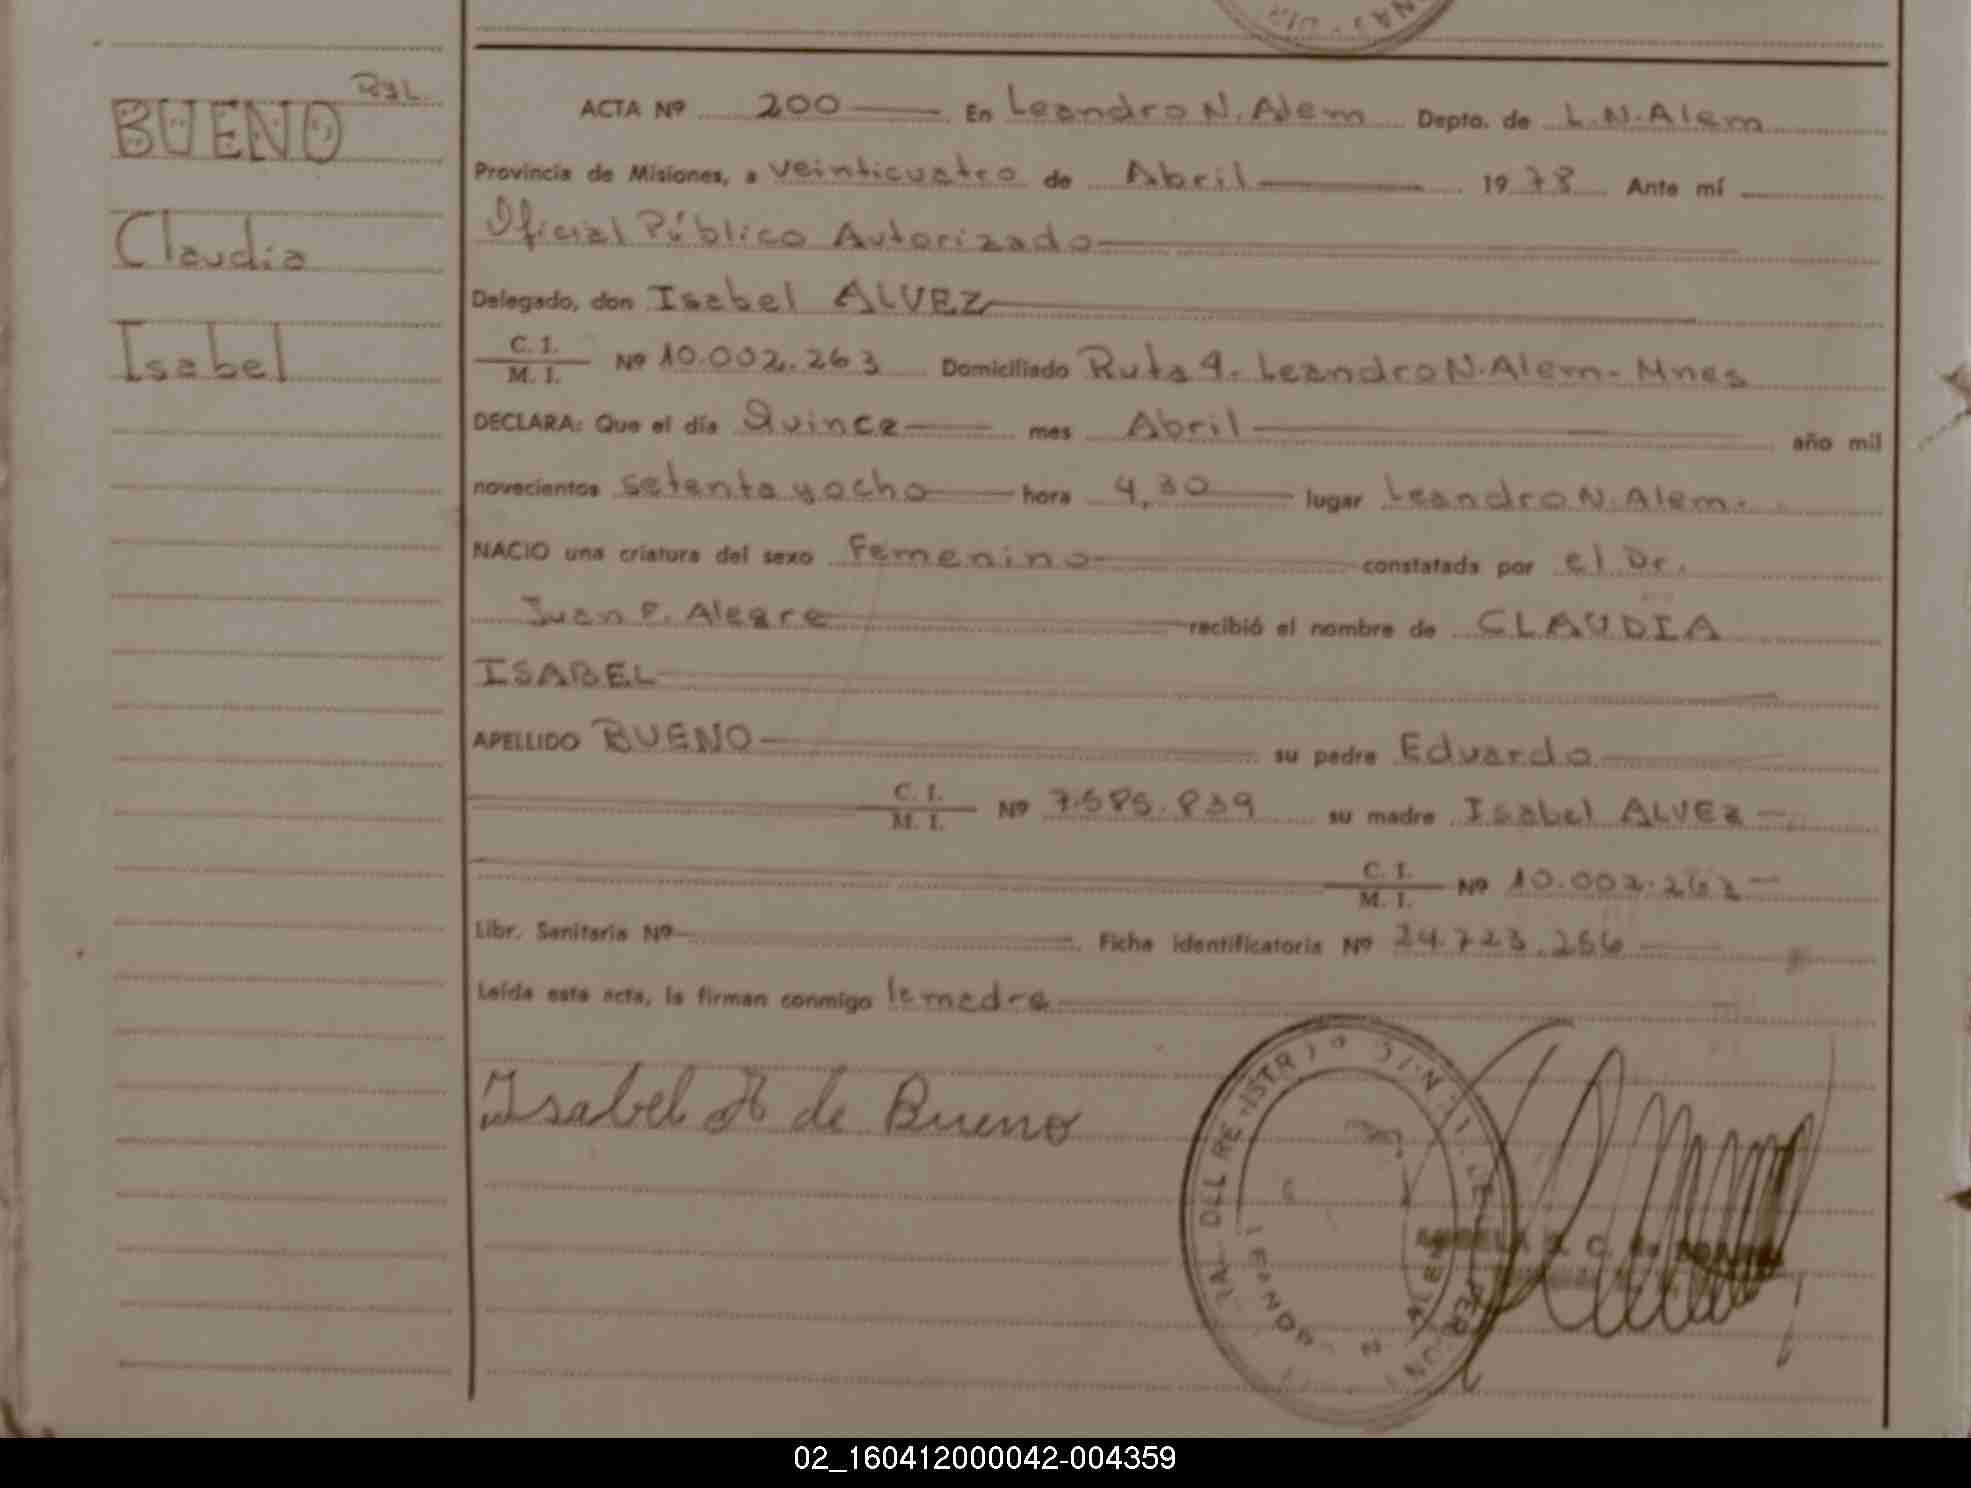 BUENO
Claudia
Isabel
ACTA Nº 200 En Leandro N. Alem Depto. de L.N.Alem
Provincia de Misiones, a veinticuatro de Abril 1978 Ante mí
Oficial Público Autorizado
Delegado, don Isabel ALVEZ
C. I.
M. I. Nº 10.002.263 Domiciliado Ruta 4. Leandro N. Alem - Mnes
DECLARA: Que el día Quince mes Abril año mil
novecientos setenta y ocho hora 4,30 lugar Leandro N. Alem.
NACIO una criatura del sexo Femenino constatada por el Dr.
Juan P. Alegre recibió el nombre de CLAUDIA
ISABEL
APELLIDO BUENO su padre Eduardo
C. I.
M. I. Nº 7.585.839 su madre Isabel ALVEZ
C. I.
M. I. Nº 10.002.263
Libr. Sanitaria Nº Ficha identificatoria Nº
Leída esta acta, la firman conmigo la madre
Isabel A de Bueno
LEANDRO N. ALEM
02_160412000042-004359